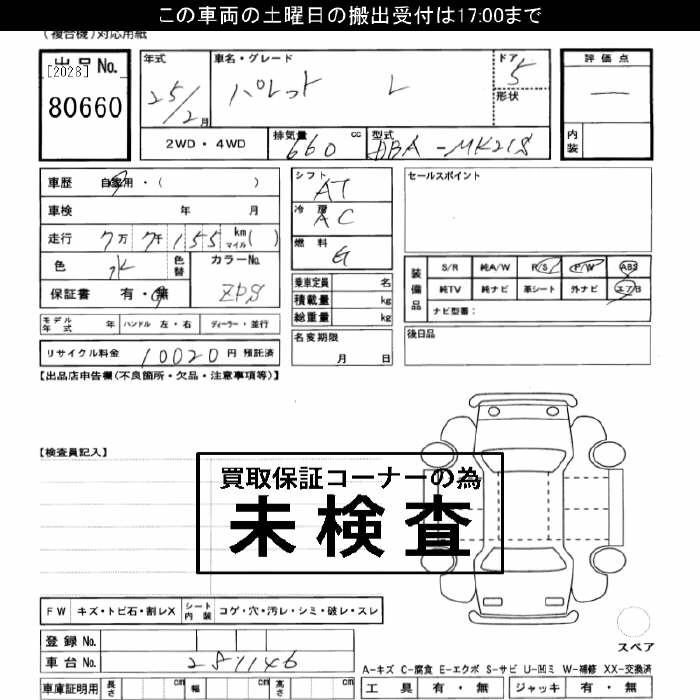 この車両の土曜日の搬出受付は17:00まで
(複合機)対応用紙
出品No.
[2028]
80660
年式
25/2月
車名・グレード
パレット L
ドア
5
形状
評価点
—
内装
2WD・4WD
排気量
660 cc
型式
DBA-MK21S
車歴 自家用・( )
車検 年 月
走行 7万7千155 km マイル( )
色 水
色替
カラーNo.
ZPS
保証書 有・無
シフト
AT
冷房
AC
燃料
G
乗車定員 名
積載量 kg
総重量 kg
セールスポイント
装備品
S/R 純A/W P/S P/W ABS
純TV 純ナビ 革シート 外ナビ エアB
ナビ型番:
モデル年式 年 ハンドル 左・右 ディーラー・並行
名変期限
月 日
後日品
リサイクル料金 10020円 預託済
【出品店申告欄(不良箇所・欠品・注意事項等)】
【検査員記入】
買取保証コーナーの為
未検査
FW キズ・トビ石・割レX シート内装 コゲ・穴・汚レ・シミ・破レ・スレ
登録No.
車台No. 281146
スペア
A-キズ C-腐食 E-エクボ S-サビ U-凹ミ W-補修 XX-交換済
車庫証明用 長さ cm 幅 cm 高さ cm
工具 有・無 ジャッキ 有・無